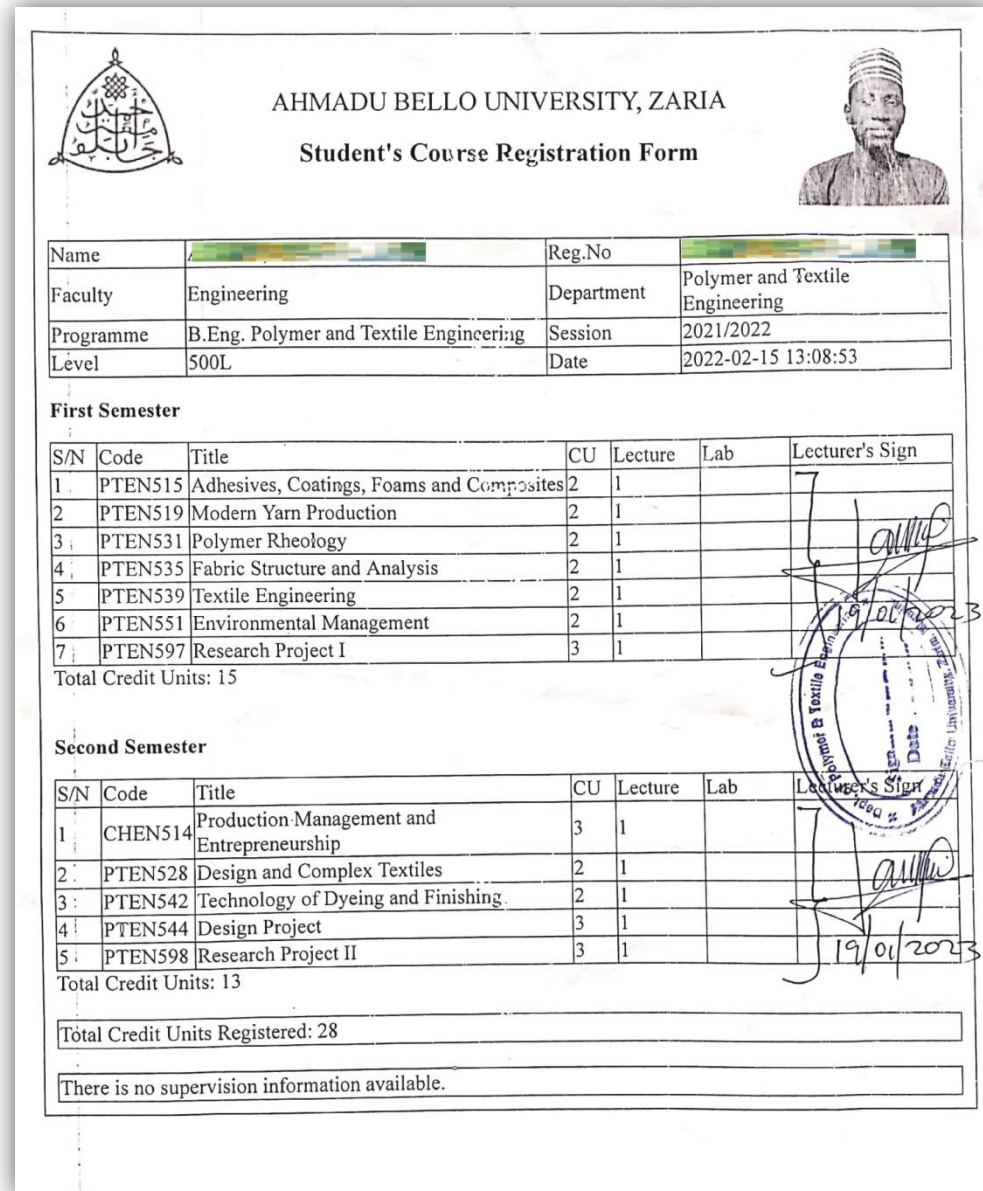 AHMADU BELLO UNIVERSITY, ZARIA
Student's Course Registration Form
Name Reg.No
Faculty Engineering Department Polymer and Textile Engineering
Programme B.Eng. Polymer and Textile Engineering Session 2021/2022
Level 500L Date 2022-02-15 13:08:53
First Semester
S/N Code Title CU Lecture Lab Lecturer's Sign
1 PTEN515 Adhesives, Coatings, Foams and Composites 2 1
2 PTEN519 Modern Yarn Production 2 1
3 PTEN531 Polymer Rheology 2 1
4 PTEN535 Fabric Structure and Analysis 2 1
5 PTEN539 Textile Engineering 2 1
6 PTEN551 Environmental Management 2 1
7 PTEN597 Research Project I 3 1
19/01/2023
Total Credit Units: 15
Sign
Date
Second Semester
S/N Code Title CU Lecture Lab Lecturer's Sign
1 CHEN514 Production Management and Entrepreneurship 3 1
2 PTEN528 Design and Complex Textiles 2 1
3 PTEN542 Technology of Dyeing and Finishing 2 1
4 PTEN544 Design Project 3 1
5 PTEN598 Research Project II 3 1
19/01/2023
Total Credit Units: 13
Total Credit Units Registered: 28
There is no supervision information available.